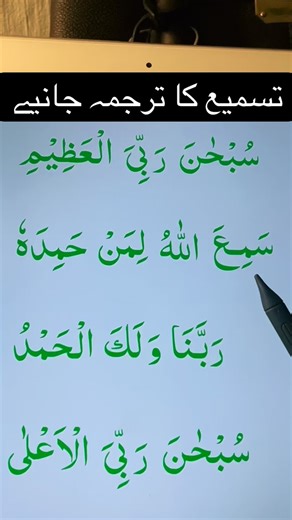 تسمیع کا ترجمہ جانیے
سُبْحٰنَ رَبِّیَ الْعَظِیْمِ
سَمِعَ اللهُ لِمَنْ حَمِدَهٗ
رَبَّنَا وَلَکَ الْحَمْدُ
سُبْحٰنَ رَبِّیَ الْاَعْلٰی